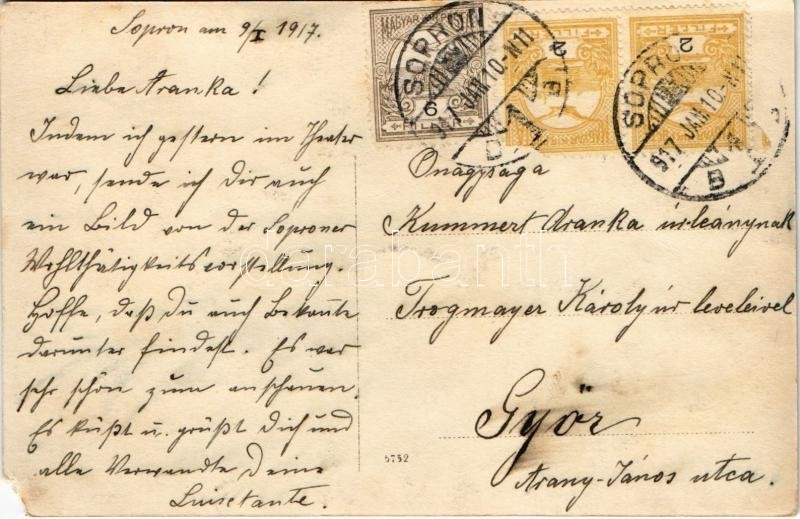 Sopron am 9/I 1917.
Liebe Aranka!
Indem ich gestern im Theater
war, sende ich Dir auch
ein Bild von der Soproner
Wohlthätigkeitsvorstellung.
Hoffe, daß Du auch Bekannte
darunter findest. Es war
sehr schön zum anschauen.
Es küßt u. grüßt Dich und
alle Verwandte Deine
Luisetante.
5752
MAGYAR
6
FILLÉR
2
2
SOPRON
917 JAN 10-N11
SOPRON
917 JAN 10-N11
Önagysága
Kummert Aranka úrleánynak
Trogmayer Károly úr leveleivel
Győr
Arany-János utca.
darabanth